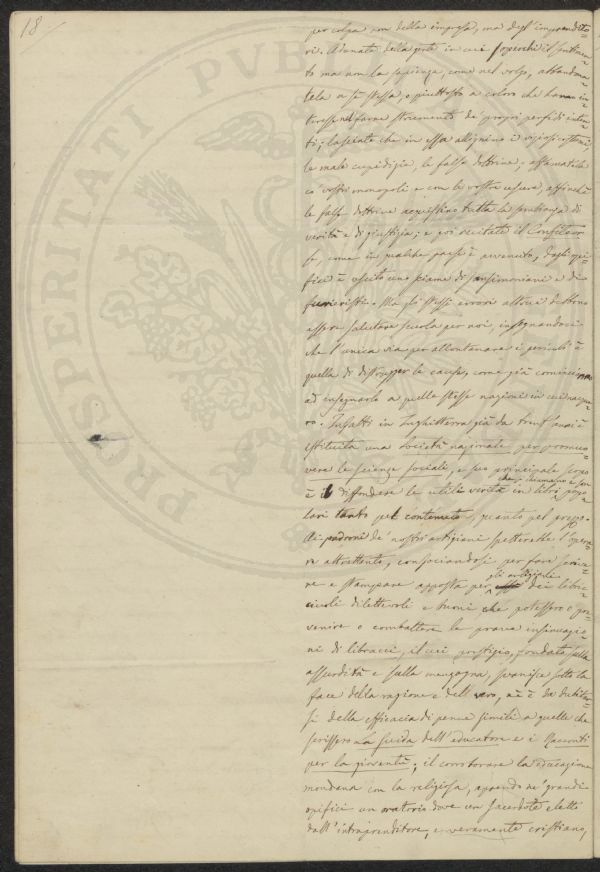 18/
PROSPERITATI PUBLI
per colpa non della impresa, ma degl'imprendito=
ri. Adunate della gente in cui soverchi il sentimen=
to ma non la sapienza, come nel volgo, abbandona=
tela a sè stessa, o piuttosto a coloro che hanno in=
teresse di farne stromento de' propri perfidi inten=
ti; lasciate che in essa allignino i viziosi costumi,
le male cupidigie, le false dottrine; affamatela
co' vostri monopoli e con le vostre usure, affinchè
le false dottrine acquistino tutta la sembianza di
verità e di giustizia; e poi
se, come in qualche paese è avvenuto, dagli opi=
fici è uscito uno sciame di sansimoniani e di
furieristi. Ma gli stessi errori altrui debbono
essere salutare scuola per noi, insegnandoci
che l'unica via per allontanare i pericoli è
quella di distrugger le cause, come già cominciano
ad insegnarlo a quelle stesse nazioni in cui nacque=
ro. Infatti in Inghilterra già da trent'anni è
istituita una Società nazionale per promuo=
vere le scienze sociali, e suo principale scopo
è il diffondere le utili verità in libri che chiamano popo=
lari tanto pel contenuto, quanto pel prezzo.
Ai padroni de' nostri artigiani spetterebbe l'opera=
re altrettanto, consociandosi per fare scrive=
re e stampare apposta per gli artigiani dei libri=
cciuoli dilettevoli e buoni che potessero pre=
venire e combattere le prave insinuazio=
ni di libracci, il cui prestigio, fondato sulla
assurdità e sulla menzogna, svanisce sotto la
face della ragione e del vero, nè è da dubitar=
si della efficacia di penne simili a quelle che
scrissero La Guida dell'educatore e i Racconti
per la gioventù; il corroborare la educazione
mondana con la religiosa, aprendo ne' grandi
opifici un oratorio dove un Sacerdote eletto
dall'intraprenditore, e veramente cristiano,